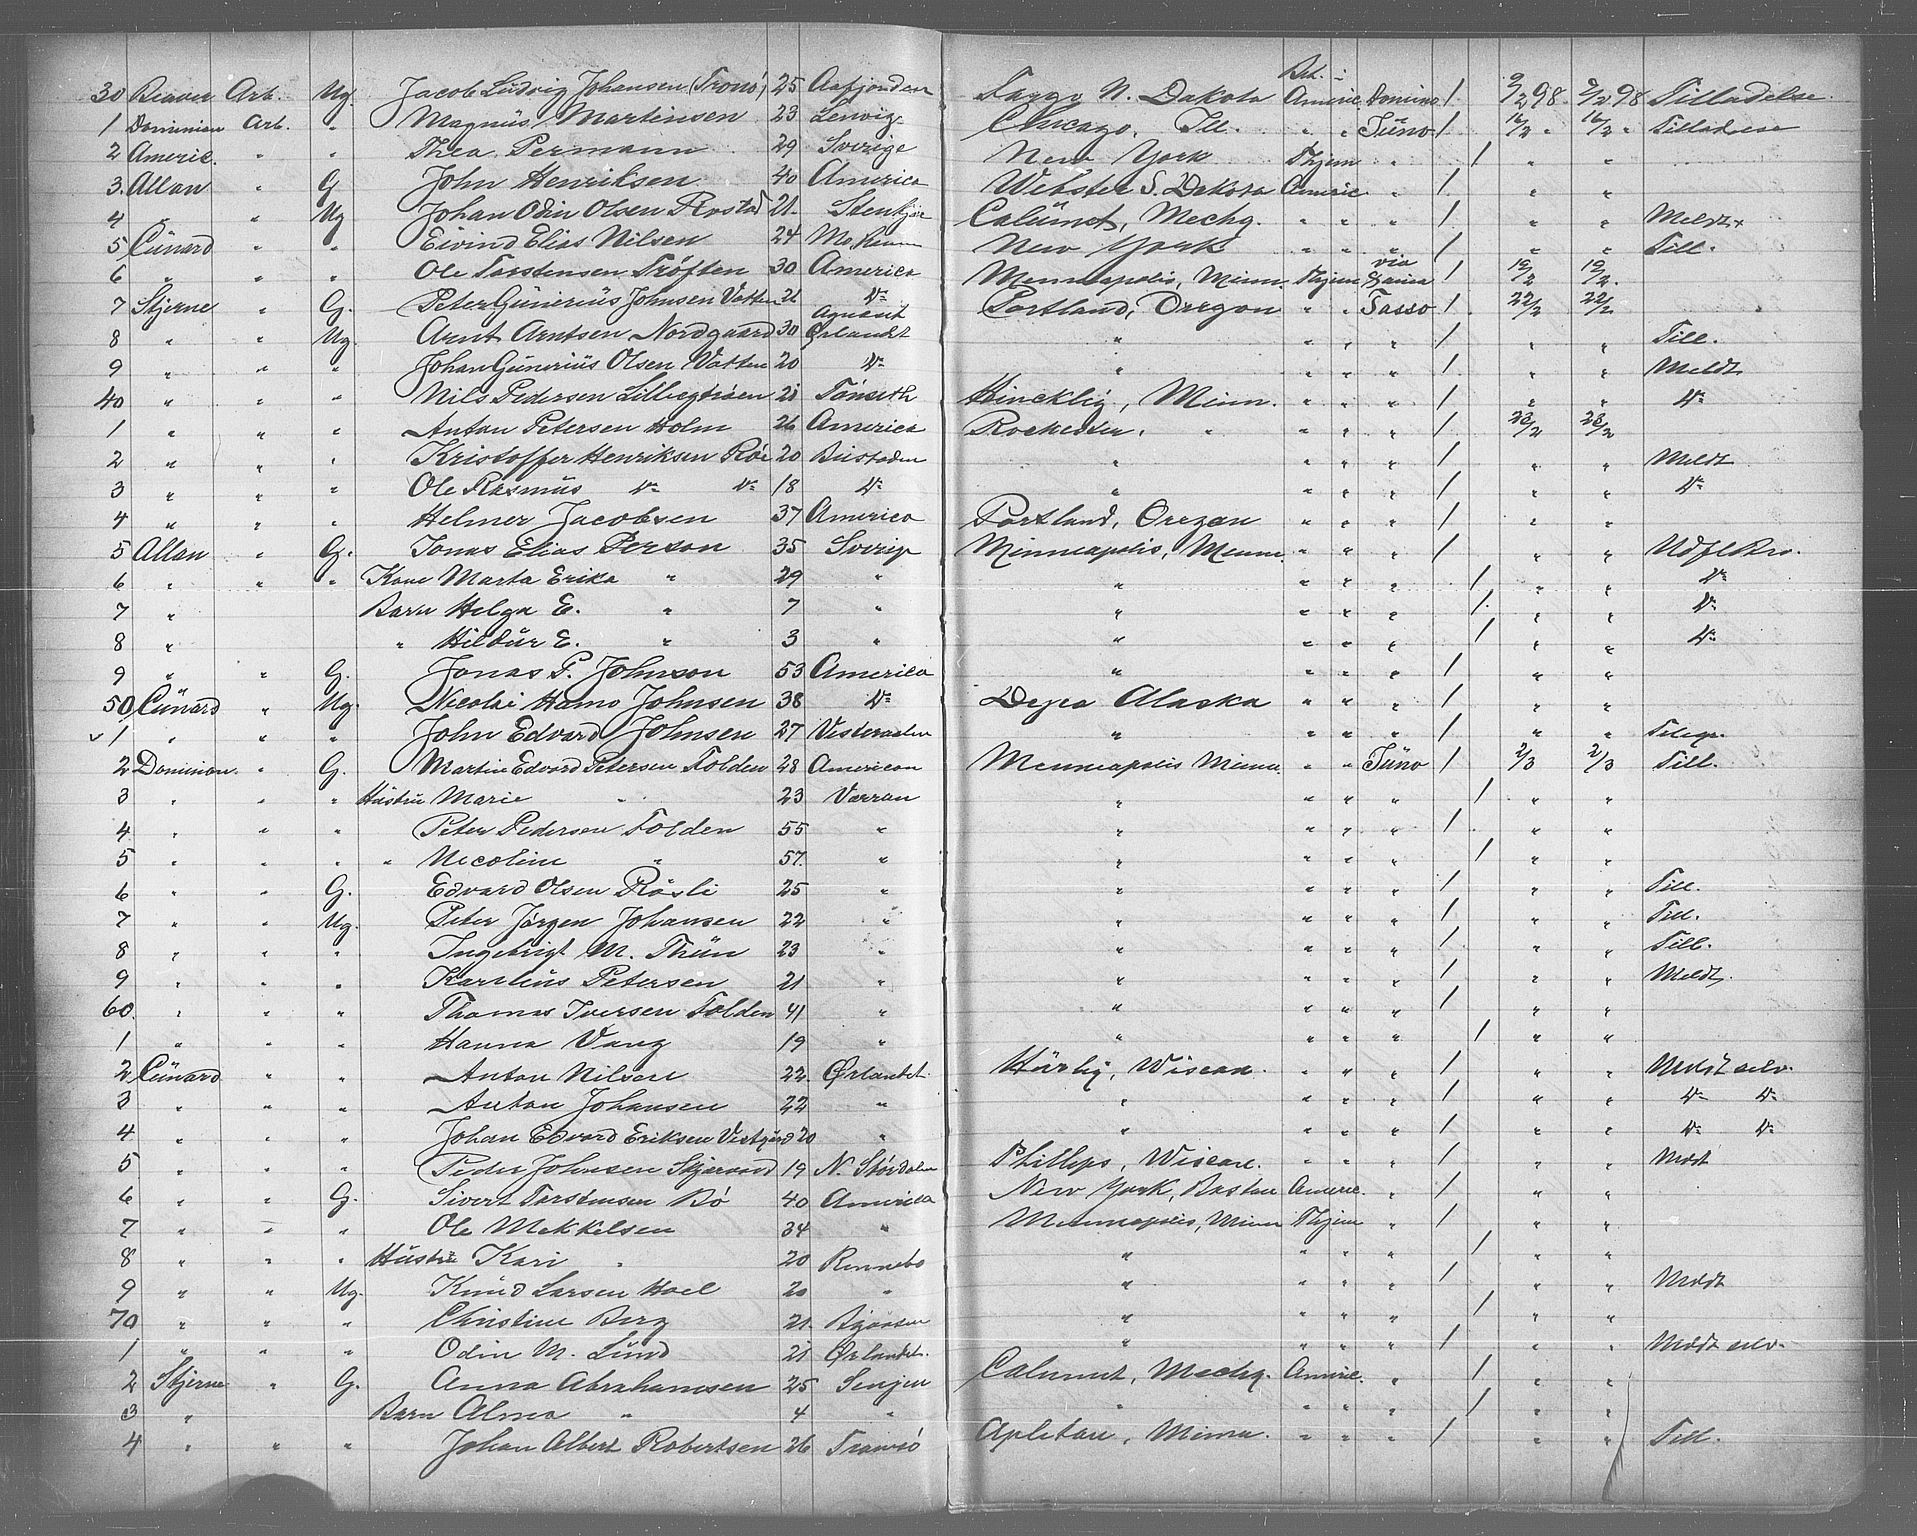 30 Beaver Arb. Ug. Jacob Ludvig Johansen (Tromsö) 25 Aafjorden Fargo N. Dakota Bet. Americ. Domino / 9/2 98. 9/2 98 Tilladelse
1 Dominion Arb. " Magnus Martinsen 23 Lenvig Chicago, Ill. " " Juno / 16/2 " 16/2 " Tilladelse
2 Americ. " " Thea Permann 29 Sverige New York Thjem " / " "
3. Allan " G John Henriksen 40 America Webster S. Dakota Americ. " / " "
4 " " Ug Johan Odin Olsen Rostad 21. Stenkjær Calumet, Mechg. " " " / " " Meldt
5 Cunard " " Eivind Elias Nilsen 24 Mo New York " " " / " " Till.
6 " " " Ole Torstensen Tröften 30 America Menneapolis, Minn. Thjem via / 19/2 19/2.
7 Stjerne " G. Peter Gunerius Johnsen Vatten 21 do Portland, Oregon " " Tasso / 22/2 22/2
8 " " Ug. Arnt Arntsen Nordgaard 30 Agnant Ørlandt " " " " / " " Till.
9 " " " Johan Gunerius Olsen Vatten 20 do " " " " / " " Meldt
40 " " " Nils Pedersen 21 Tönseth Hincklig, Minn. " " " / " " do
1 " " " Anton Petersen Holm 26 America Rochester, " " " " / 23/2 23/2
2 " " " Kristoffer Henriksen Röe 20 Bustaden " " " " / " " Meldt
3 " " " Ole Rasmus do do 18 do " " " " / " " do
4 " " " Helmer Jacobsen 37 America Portland, Oregon " " " / " "
5 Allan " G. Jonas Elias Person 35 Sverige Minneapolis, Minn. " " " / " " Udfl Bro.
6 " " " Kone Marta Erika " 29 " " " " " / " " do
7 " Barn Helga E. " 7 " " " " " / " " do
8 " " Hildur E. " 3 " " " " " / " " do
9 " " G. Jonas P. Johnson 53 America " " " " / " "
50 Cunard " Ug. Nicolai Hans Johnsen 38 do Dyea Alaska " " " / " "
v 1 " " " John Edvard Johnsen 27 Vesteraalen " " " " / " " Telegr.
2 Dominion " G. Martin Edvard Petersen Folden 28 American Menneapolis Minn. " " Juno / 2/3 2/3 Till.
3 " " " Hustru Marie " 23 Værran " " " " / " "
4 " " " Peter Pedersen Folden 55 " " " " " / " "
5 " " " " Necoline " 57. " " " " " / " "
6 " " G. Edvard Olsen Råsli 25 " " " " " / " " Till.
7 " " Ug. Peter Jørgen Johansen 22 " " " " " / " " Till.
8 " " " Ingebrigt M. Thun 23 " " " " " / " " Till.
9 " " " Karelius Petersen 21 " " " " " / " " Meldt
60. " " " Thomas Iversen Folden 41 " " " " " / " "
1 " " " Hanna Vang 19 " " " " " / " "
2 Cunard " " Anton Nilsen 22. Ørlandet. Hurlig, Wiscon. " " " / " " Meldt selv.
3 " " " Anton Johansen 22 " " " " " / " " do do
4 " " " Johan Edvard Eriksen Vestgård 20 " " " " " / " " do do
5 " " " Peder Johnsen 19 N. Stördalen Phillips, Wiscon. " " " / " " Meldt
6 " " G. Sivert Torstensen Bö 40 America New York, Boston Americ. " / " "
7 " " " Ole Mekkelsen 34 " Menneapolis, Minn Thjem " / " "
8 " " " Hustru Kari " 20 Rennebo " " " " / " "
9 " " Ug. Knud Larsen Hoel 20 " " " " " / " " Meldt
70 " " " Christine Berg 21. " " " " / " "
1 " " " Odin M. Lund 21 Ørlandet. " " " " / " " Meldt selv.
2 Stjerne " G. Anna Abrahamsen 25 Senjen Calumet, Mechg. Americ. " / " "
3 " Barn Alma " 4 " " " " " / " "
4 " " " Johan Albert Robertsen 26 Tromsö Apletan, Minn. " " " / " " Till.